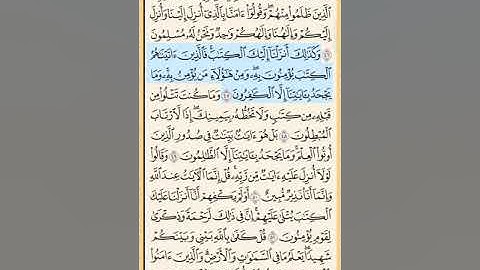 ٱلَّذِينَ ظَلَمُوا۟ مِنْهُمْ ۖ وَقُولُوٓا۟ ءَامَنَّا بِٱلَّذِىٓ أُنزِلَ إِلَيْنَا وَأُنزِلَ
إِلَيْكُمْ وَإِلَٰهُنَا وَإِلَٰهُكُمْ وَٰحِدٌ وَنَحْنُ لَهُۥ مُسْلِمُونَ
٤٦ وَكَذَٰلِكَ أَنزَلْنَآ إِلَيْكَ ٱلْكِتَٰبَ ۚ فَٱلَّذِينَ ءَاتَيْنَٰهُمُ
ٱلْكِتَٰبَ يُؤْمِنُونَ بِهِۦ ۖ وَمِنْ هَٰٓؤُلَآءِ مَن يُؤْمِنُ بِهِۦ ۚ وَمَا
يَجْحَدُ بِـَٔايَٰتِنَآ إِلَّا ٱلْكَٰفِرُونَ ٤٧ وَمَا كُنتَ تَتْلُوا۟ مِن
قَبْلِهِۦ مِن كِتَٰبٍ وَلَا تَخُطُّهُۥ بِيَمِينِكَ ۖ إِذًا لَّٱرْتَابَ
ٱلْمُبْطِلُونَ ٤٨ بَلْ هُوَ ءَايَٰتٌۢ بَيِّنَٰتٌ فِى صُدُورِ ٱلَّذِينَ
أُوتُوا۟ ٱلْعِلْمَ ۚ وَمَا يَجْحَدُ بِـَٔايَٰتِنَآ إِلَّا ٱلظَّٰلِمُونَ ٤٩ وَقَالُوا۟
لَوْلَآ أُنزِلَ عَلَيْهِ ءَايَٰتٌ مِّن رَّبِّهِۦ ۖ قُلْ إِنَّمَا ٱلْـَٔايَٰتُ عِندَ ٱللَّهِ
وَإِنَّمَآ أَنَا۠ نَذِيرٌ مُّبِينٌ ٥٠ أَوَلَمْ يَكْفِهِمْ أَنَّآ أَنزَلْنَا عَلَيْكَ
ٱلْكِتَٰبَ يُتْلَىٰ عَلَيْهِمْ ۚ إِنَّ فِى ذَٰلِكَ لَرَحْمَةً وَذِكْرَىٰ
لِقَوْمٍ يُؤْمِنُونَ ٥١ قُلْ كَفَىٰ بِٱللَّهِ بَيْنِى وَبَيْنَكُمْ
شَهِيدًا ۖ يَعْلَمُ مَا فِى ٱلسَّمَٰوَٰتِ وَٱلْأَرْضِ ۗ وَٱلَّذِينَ ءَامَنُوا۟